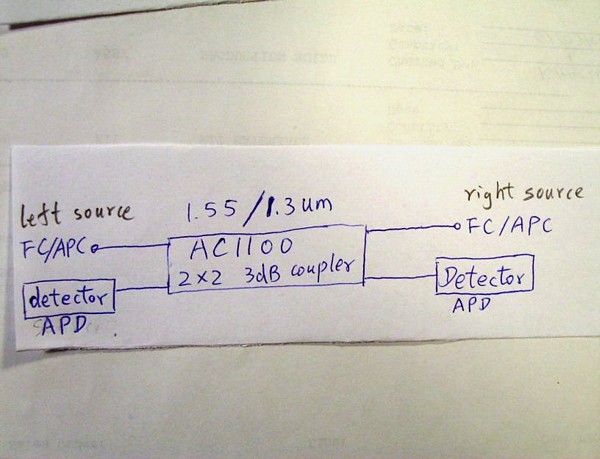 left source
1.55/1.3um
right source
FC/APC
AC1100
FC/APC
2×2 3dB coupler
detector
Detector
APD
APD